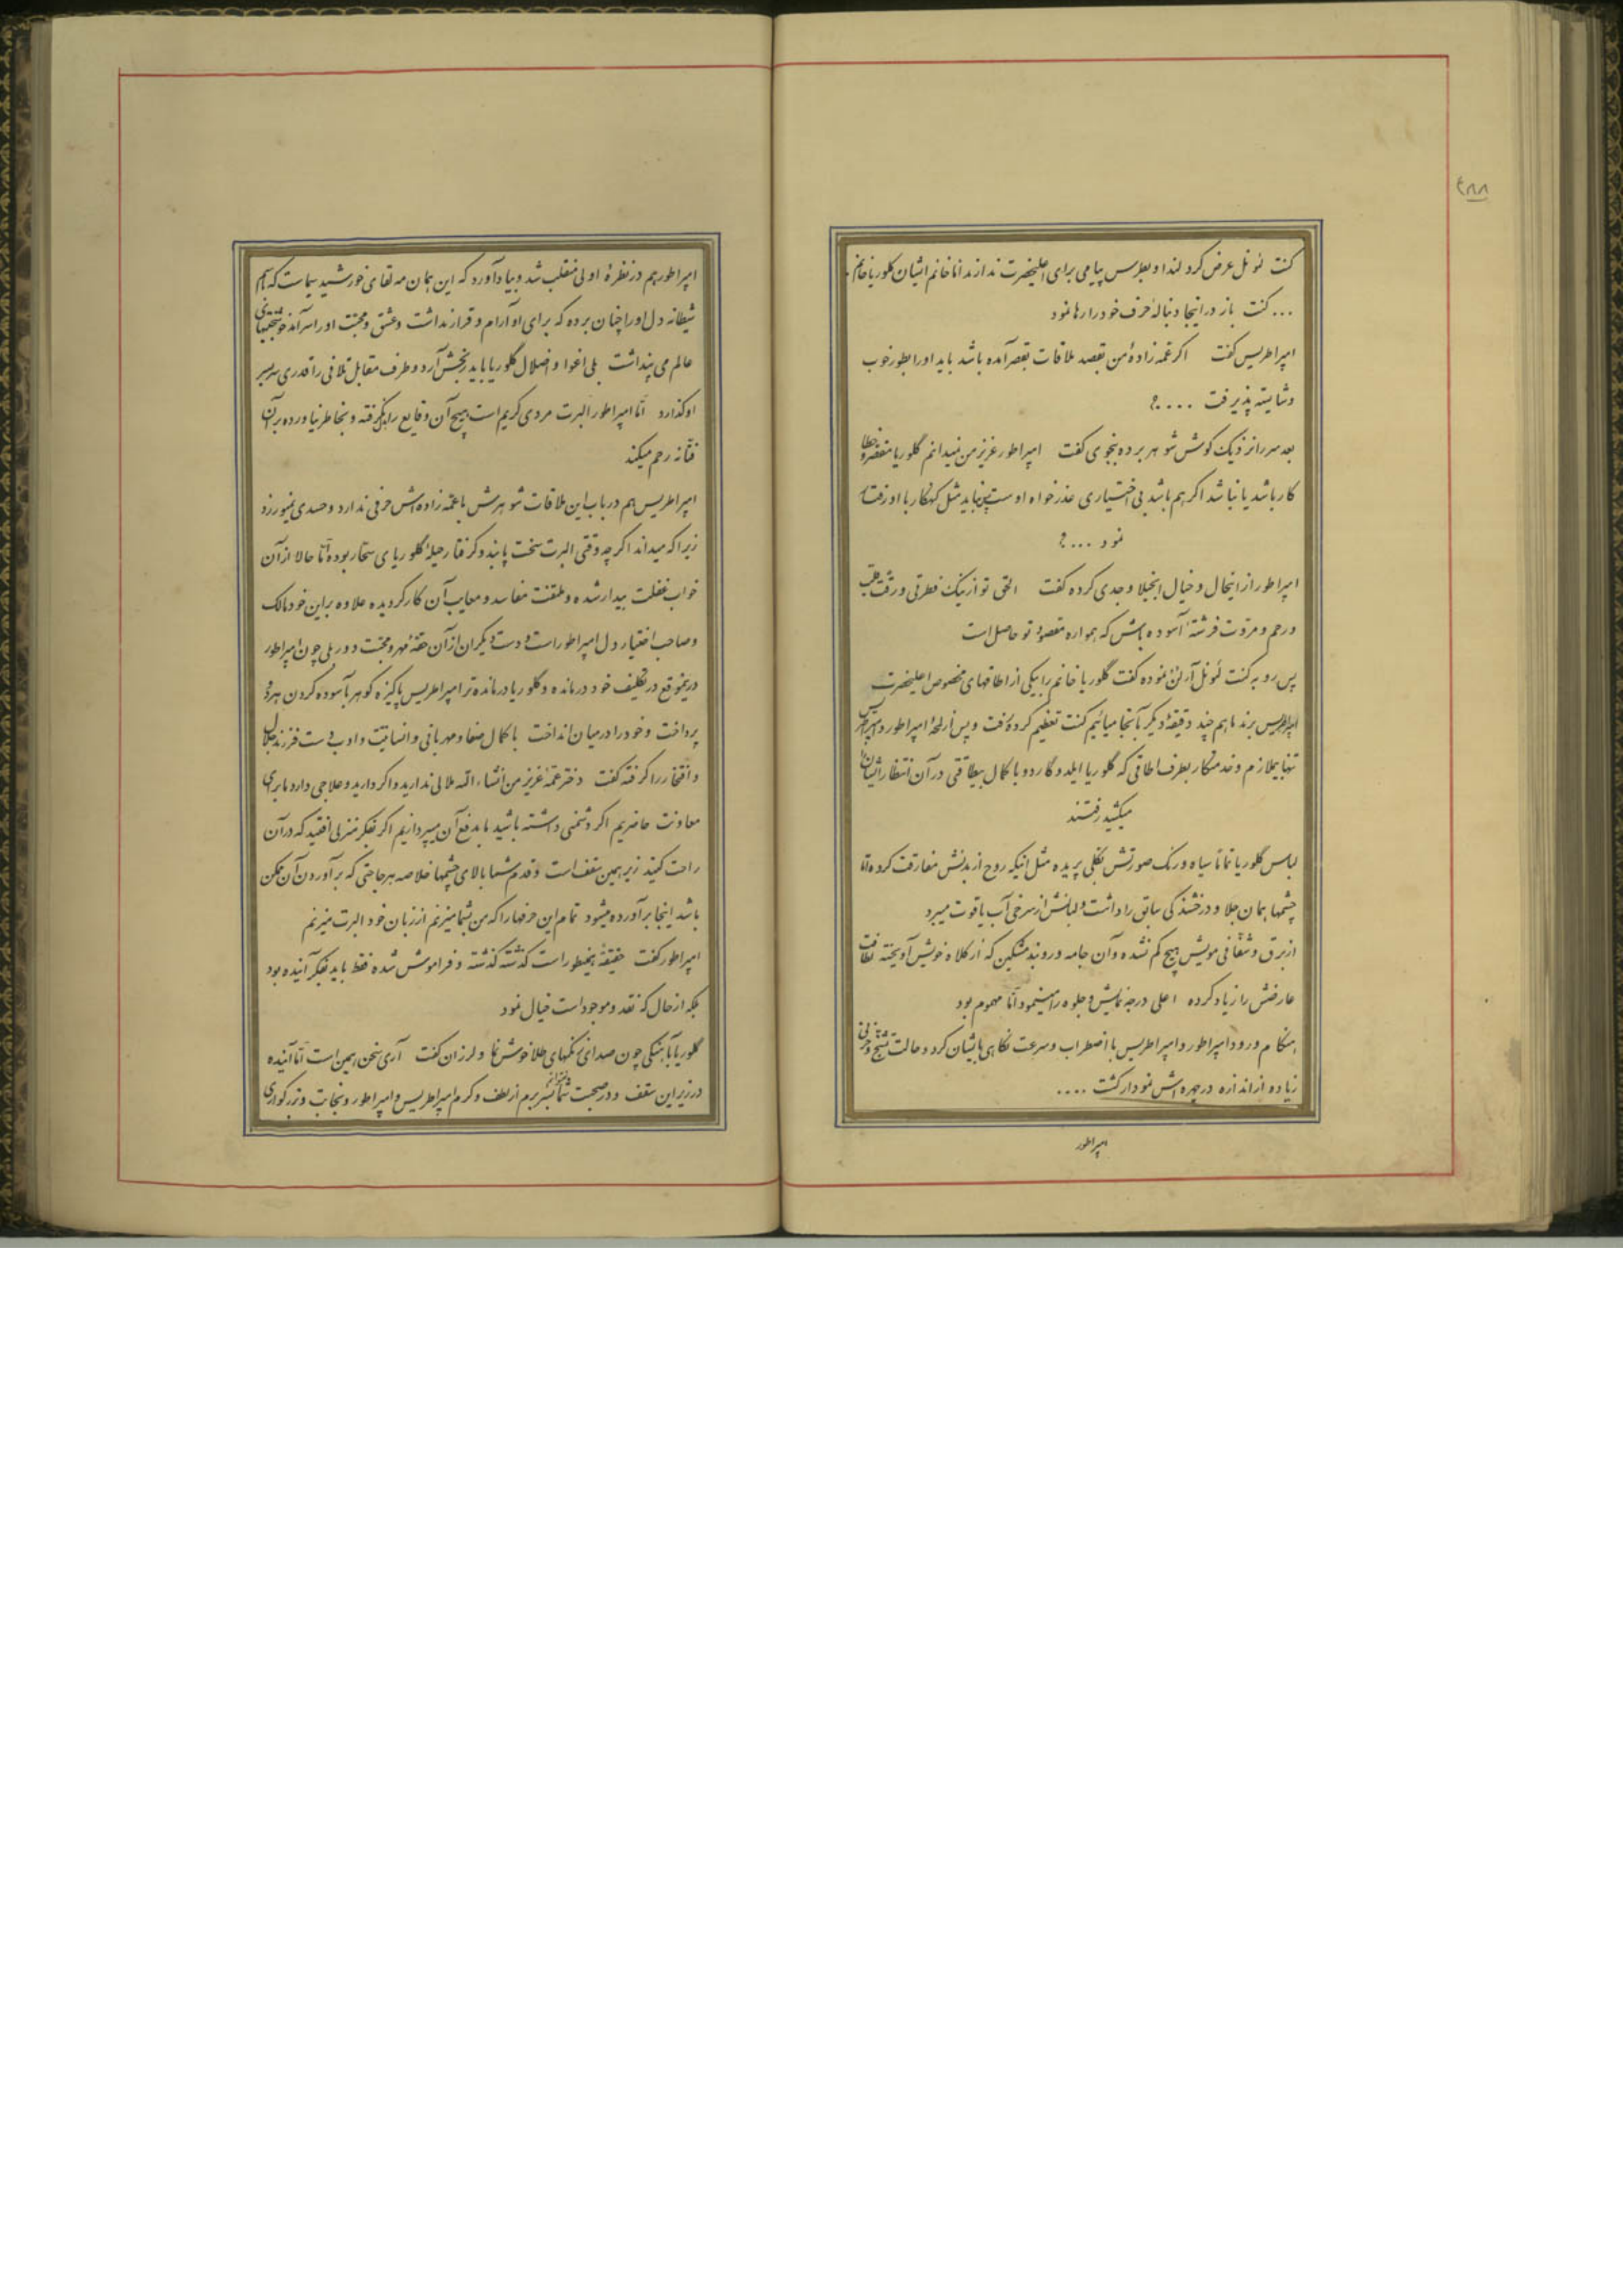 ۲۸۸
کنت لونل عرض کرد لندا و بطرس پیامی برای اعلیحضرت ندارند اما خانم ایشان گلوریا خانم
... کنت باز در اینجا دنبالهٔ حرف خود را رها نمود
امپراطریس گفت اگر عمه زادهٔ من بقصد ملاقات بقصر آمده باشد باید او را بطور خوب
و شایسته پذیرفت ....؟
بعد سر را نزدیک گوش شوهر برده بنجوی گفت امپراطور عزیز من نمیدانم گلوریا مقصر و خطا
کار باشد یا نباشد اگر هم باشد بی اختیاری عذرخواه اوست پس نباید مثل گنهکار با او رفتار
نمود ...؟
امپراطور از اینحال و خیال انجیلا وجدی کرده گفت الحق تو از نیک فطرتی و رقت قلب
و رحم و مروت فرشتهٔ آسوده باش که همواره مقصود تو حاصل است
پس رو به کنت لونل آرلن نموده گفت گلوریا خانم را بیکی از اطاقهای مخصوص اعلیحضرت
امپراطریس برند ما هم چند دقیقهٔ دیگر بآنجا میائیم کنت تعظیم کرده رفت و پس از لمحهٔ امپراطور و امپراطریس
تنها بیملازم و خدمتکار بطرف اطاقی که گلوریا ایلدوگاردو با کمال بیطاقتی در آن انتظار ایشان را
میکشید رفتند
لباس گلوریا تماماً سیاه و رنگ صورتش بکلی پریده مثل اینکه روح از بدنش مفارقت کرده اما
چشمها همان جلا و درخشندگی سابق را داشت و لبانش از سرخی آب یاقوت میبرد
از برق و شفافی مویش هیچ کم نشده و آن جامه و روبند مشکین که از کلاه خویش آویخته لطافت
عارضش را زیاد کرده اعلی درجه نمایش و جلوه را مینمود و اما مهموم بود
هنگام ورود امپراطور و امپراطریس با اضطراب و سرعت نگاهی بایشان کرد و حالت تشنج و حزنی
زیاده از اندازه در چهره اش نمودار گشت ....
امپراطور
امپراطور هم در نظرهٔ اولی منقلب شد و بیاد آورد که این همان مه لقای خورشید سیماست که
شیطانه دل او را چنان برده که برای او آرام و قرار نداشت و عشق و محبت او را سرآمد خوشبختیهای
عالم می پنداشت بلی اغوا و اضلال گلوریا باید رنجش آرد و طرف مقابل تلافی را قدری سربسر
او گذارد اما امپراطور البرت مردی کریم است هیچ آن وقایع را بدل نگرفته و بخاطر نیاورده بر آن
فتانه رحم میکند
امپراطریس هم در باب این ملاقات شوهرش با عمه زاده اش حرفی ندارد و حسدی نمیورزد
زیرا که میداند اگرچه وقتی البرت سخت پابند و گرفتار حیلهٔ گلوریای سحار بوده اما حالا از آن
خواب غفلت بیدار شده و ملتفت مفاسد و معایب آن کار گردیده علاوه بر این خود مالک
و صاحب اختیار دل امپراطور است و دست دیگران از آن حقهٔ مهر و محبت دور بلی چون امپراطور
درینموقع در تکلیف خود درمانده و گلوریا درمانده تر امپراطریس پاکیزه گوهر بآسوده کردن هر دو
پرداخت و خود را در میان انداخت با کمال صفا و مهربانی و انسانیت و ادب دست فرزند جلال
و افتخار را گرفته گفت دختر عمهٔ عزیز من انشاءالله ملالی ندارید و اگر دارید و علاجی دارد ما برای
معاونت حاضریم اگر دشمنی داشته باشید ما بدفع آن میپردازیم اگر بفکر منزلی افتید که در آن
راحت کنید زیر همین سقف است و قدم شما بالای چشمها خلاصه هر حاجتی که برآوردن آن ممکن
باشد اینجا برآورده میشود تمام این حرفها را که من بشما میزنم از زبان خود البرت میزنم
امپراطور گفت حقیقهً همینطور است گذشته گذشته و فراموش شده فقط باید بفکر آینده بود
بلکه از حال که نقد و موجود است خیال نمود
گلوریا بآهنگی چون صدای زنگهای طلا خوش نما و لرزان گفت آری سخن همین است اما آینده
در زیر این سقف و در صحبت شما نمیتوانم بسر برم از لطف و کرم امپراطریس و امپراطور و نجابت و بزرگواری